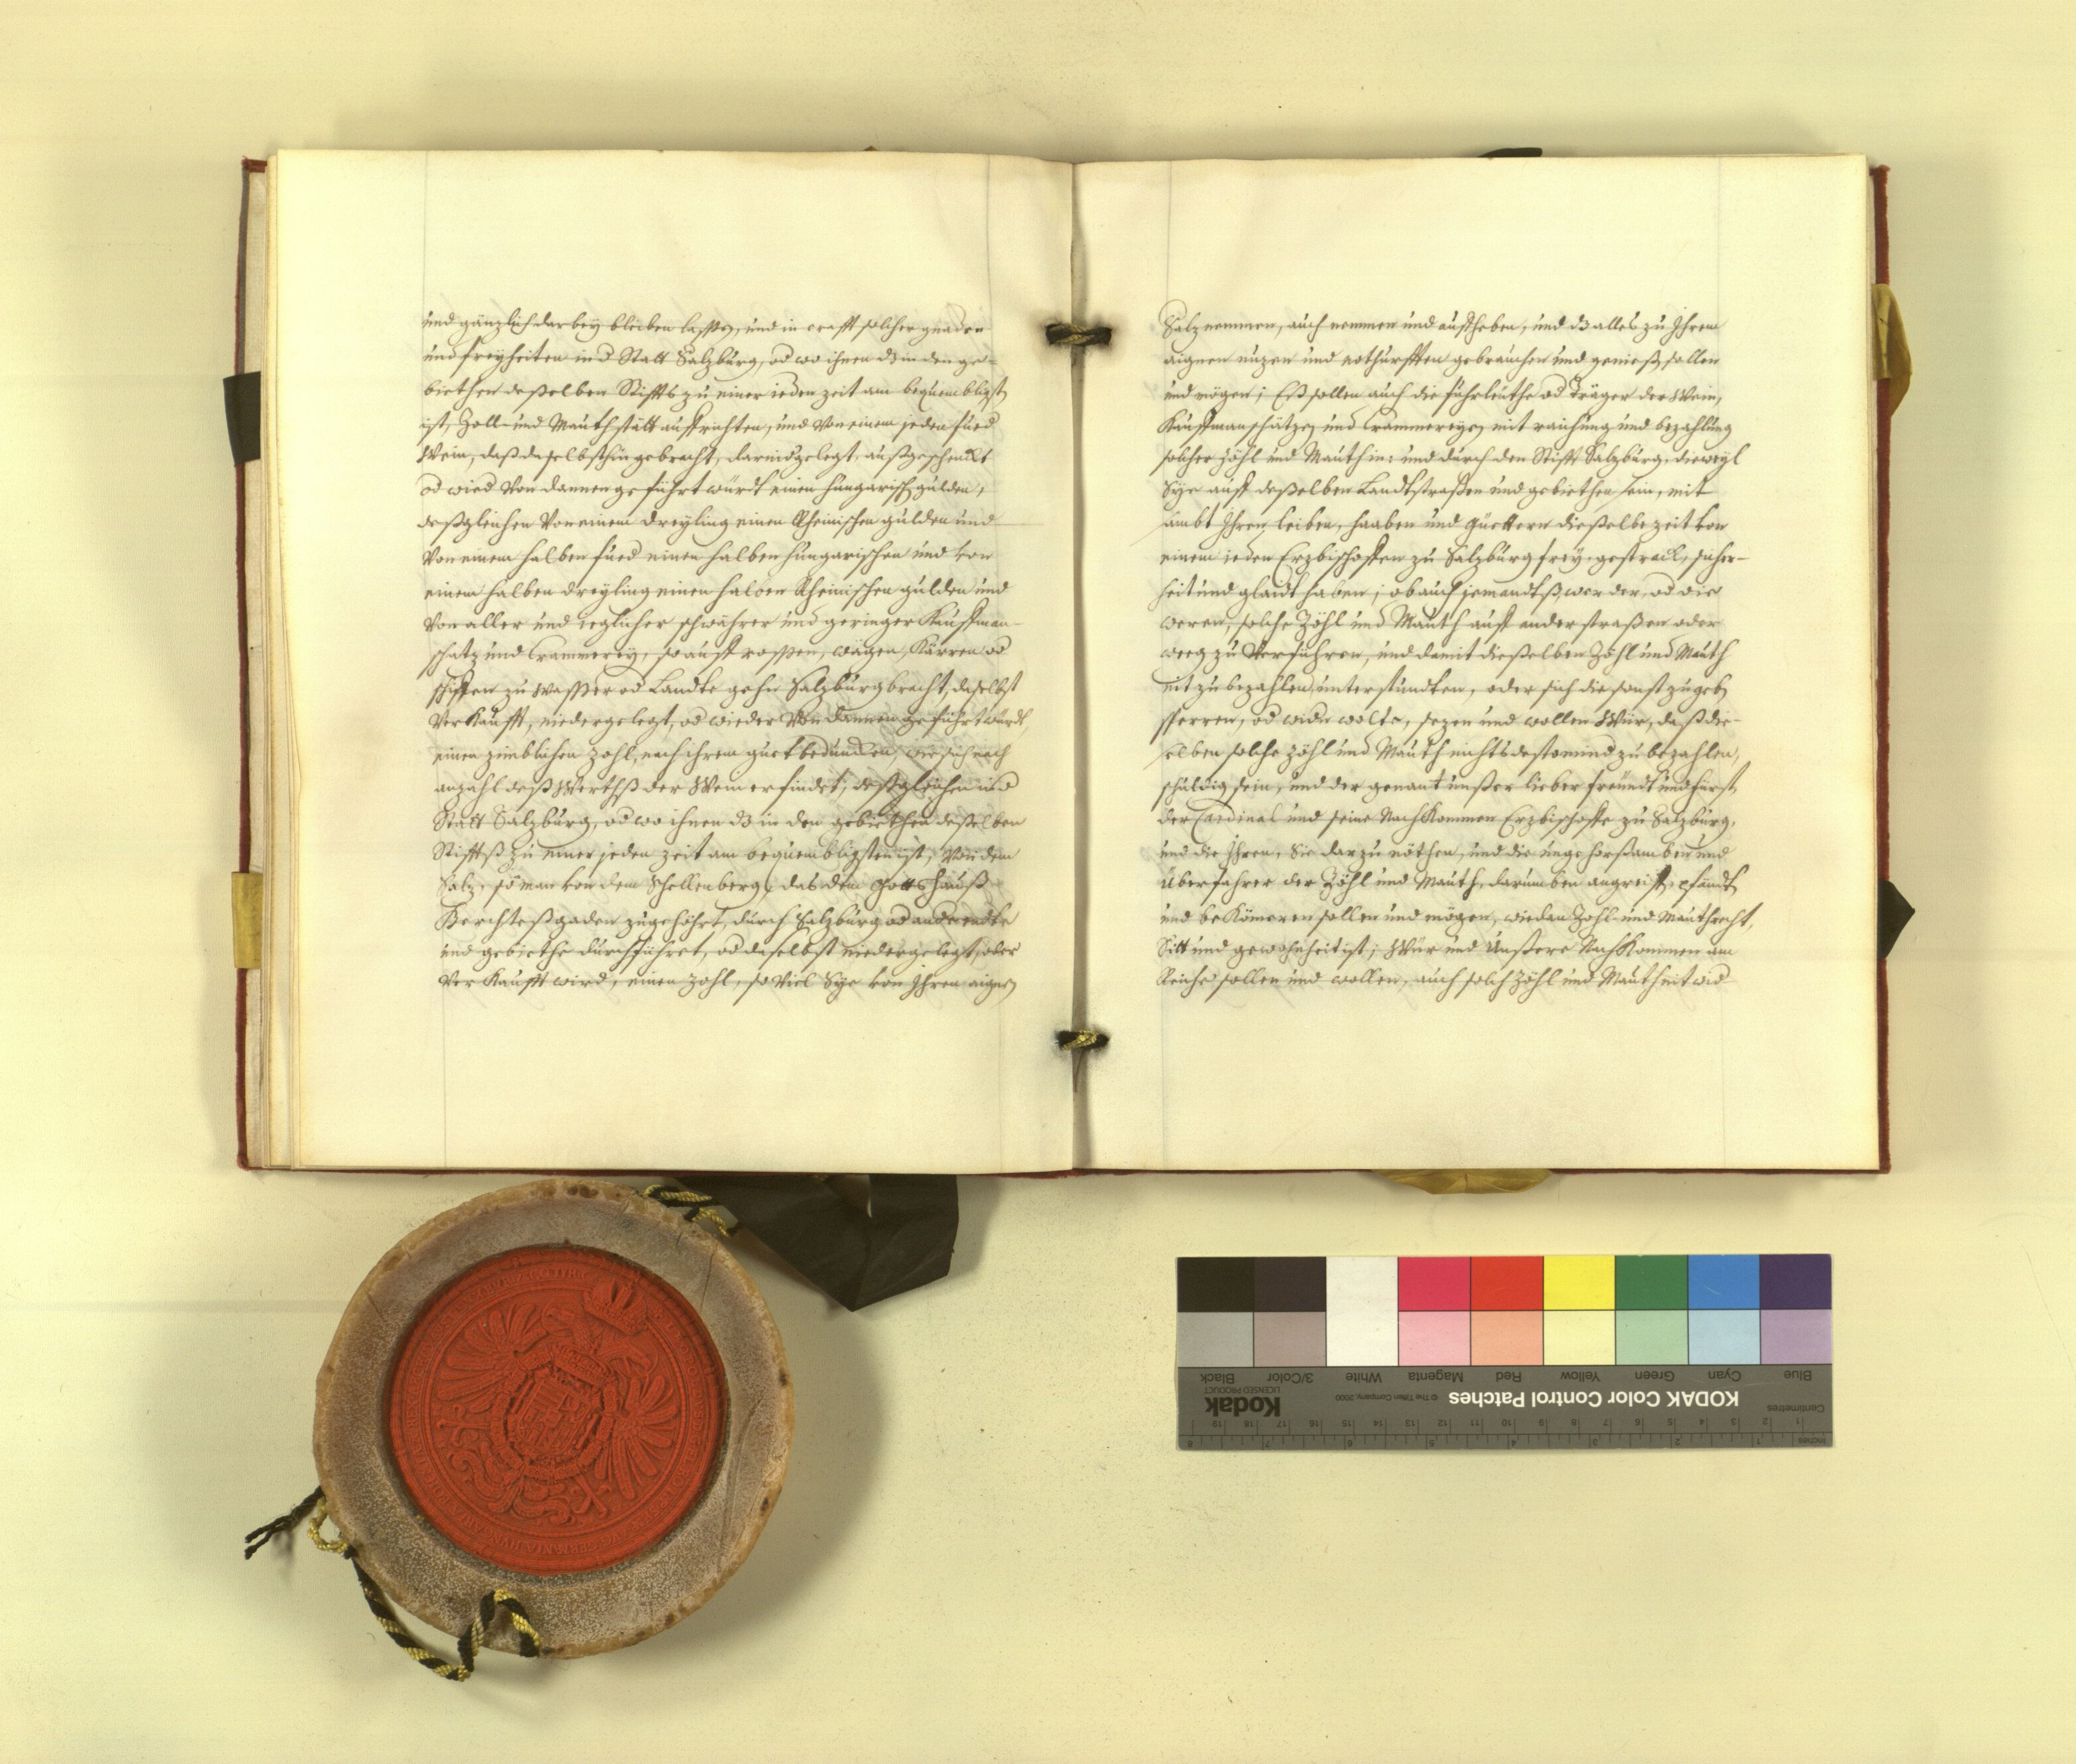 und gänzlich darbey bleiben lassen, und in crafft solcher gnaden
und freyheiten in d Statt Salzburg, od wo ihnen dz in den ge-
biethen deßelben Stiffts zu einer ieden zeit am bequembligst
ist, Zoll- und Mauthstätt auffrichten, und Von einem jeden fued
Wein, daß daselbsthin gebracht, darnidgelegt, außgeschenckt
od wied Von dannen geführt würdt einen hungarisch gulden,
deßgleichen Von einem dreyling einen Rheinischen gulden und
Von einem halben fued einen halben hungarischen und von
einem halben dreyling einen halben Rheinischen gulden und
Von aller und ieglicher schwährer und geringer Kauffman-
schatz und Crammerey, so auff rossen, wägen, Kärren od
schiffen zu Wasser od Landte gehn Salzburg bracht, daselbst
Verkaufft, niedergelegt, od wieder Von dannen geführt würdt,
einen zimblichen zohl, nach ihrem guet bedunckhen, wie sich nach
anzahl deß Werthß der Wein erfindet, deßgleichen in d
Statt Salzburg, od wo ihnen dz in den gebiethen deßelben
Stifftß zu einer jeden zeit am bequembligsten ist, Von dem
Salz, so man von dem Schellenberg, das dem Gottshauß
Berchteßgaden zugehöhrt, durch Salzburg od andere endte
und gebiethe durchführet, od daselbst niedergelegt, oder
Verkaufft wird, einen zohl, so Viel Sye von Ihren aignen
Salz nemmen, auch nemmen und auffheben, und dz alles zu Ihrem
aignen nuzen und notthurfften gebrauchen und genieß sollen
und mögen; Eß sollen auch die fuhrleuthe od Träger der Wein,
Kauffmanschätzen und Crammereyen mit raichung und bezahlung
solcher Zöhl und Mauth in: und durch den Stifft Salzburg, dieweyl
Sye auff deßelben Landtstraßen und gebiethen sein, mit
sambt Ihren leiben, haaben und Guettern dießelbe zeit von
einem ieden Erzbischoffen zu Salzburg frey, gestrack, sicher-
heit und glaidt haben; ob auch jemandtß, wer der, od die
weren, solche Zöhl und Mauth auff ander straßen oder
weeg zu Verführen, und damit dießelben Zöhl und Mauth
nit zu bezahlen unterstundten, oder sich die sonst zu geben
sperren, od widn wolte, sezen und wollen Wür, daß die-
selben solche Zöhl und Mauth nichts destomind zu bezahlen,
schuldig sein, und der genant unßer lieber freundt und fürst,
der Cardinal und seine Nachkommen Erzbischoffe zu Salzburg,
und die Ihren, Sie darzu nöthen, und die ungehorßamben und
überfahrer der Zöhl und Mauth, darumben angreiffen, pfändt
und beKömeren sollen und mögen, wie dan Zohl- und Mauthrecht,
Sitt und gewohnheit ist; Wür und Unßere Nachkommen am
Reiche sollen und wollen, auch solch Zöhl und Mauth nit wid
KODAK Color Control Patches
© The Tiffen Company, 2000
Kodak
LICENSED PRODUCT
Blue Cyan Green Yellow Red Magenta White 3/Color Black
Centimetres
Inches